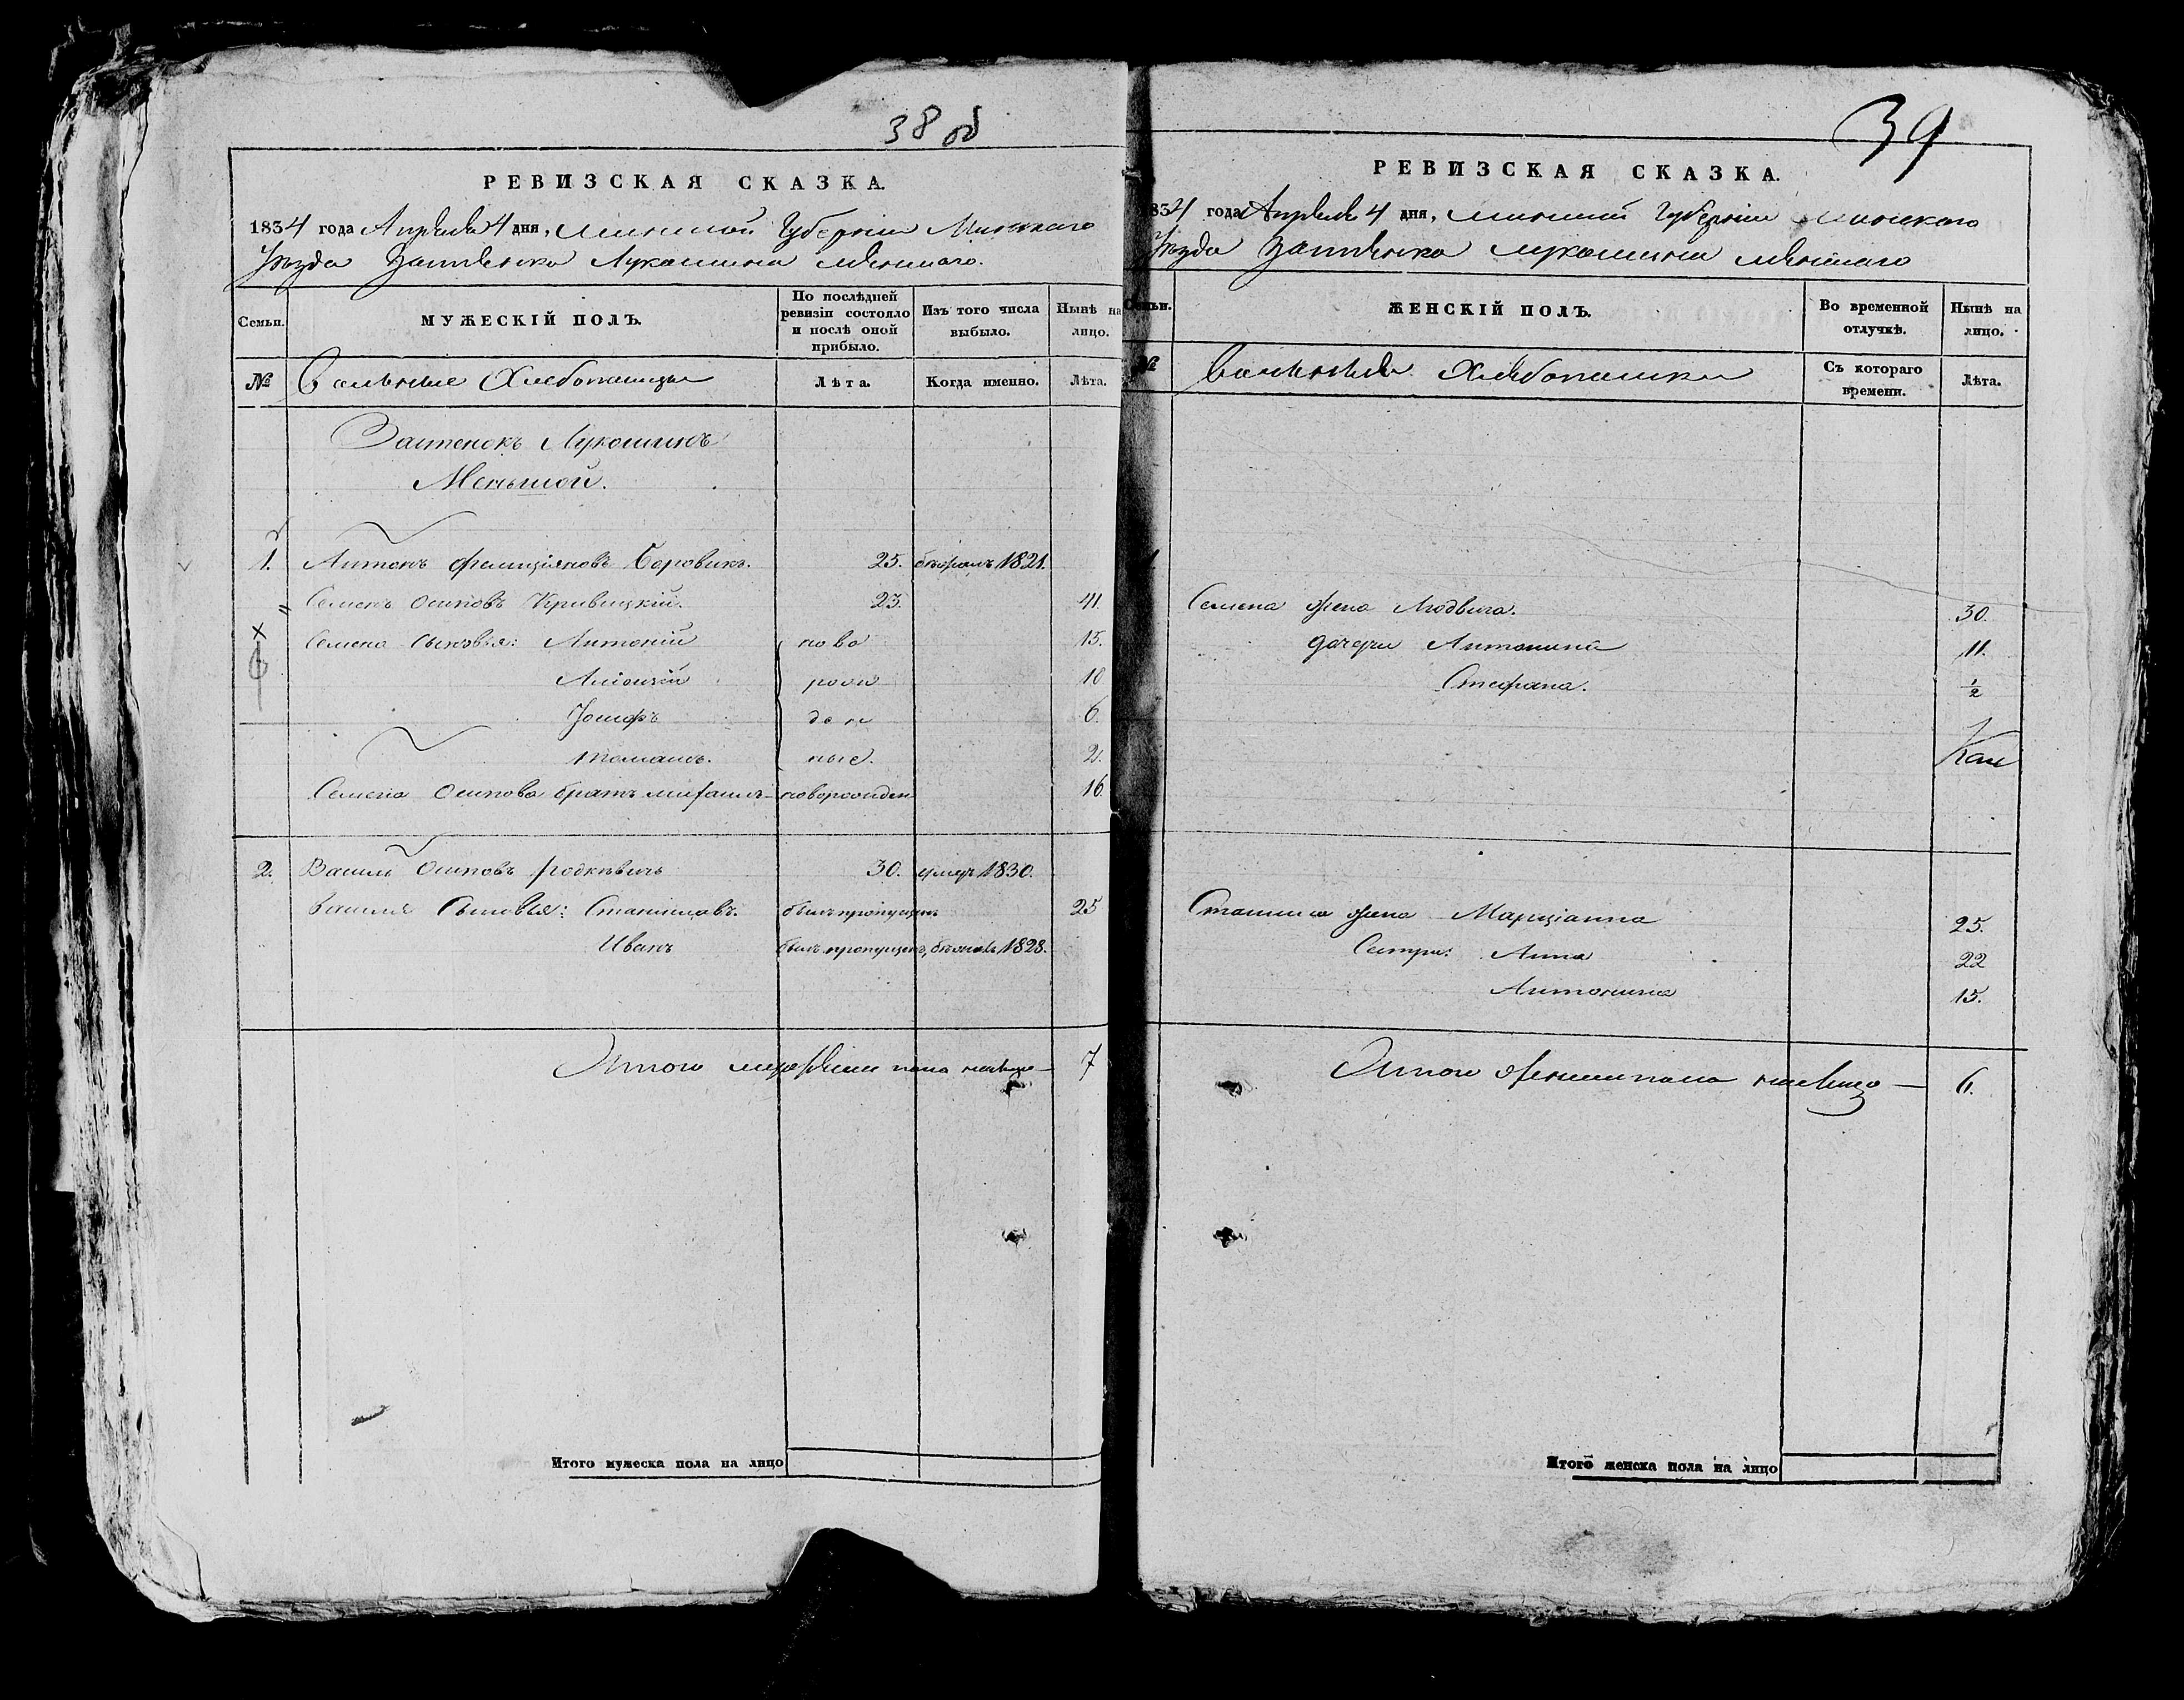 38 об
РЕВИЗСКАЯ СКАЗКА.
1834 года Апреля 4 дня, Минской Губернии Минскаго
Уѣзда Застѣнка Лукашина Меншаго.
Семьи.
МУЖЕСКІЙ ПОЛЪ.
По послѣдней ревизіи состояло и послѣ оной прибыло.
Изъ того числа выбыло.
Нынѣ на лицо.
№
Вольные Хлебопашцы
Лѣта.
Когда именно.
Лѣта.
Застенокъ Лукошинъ
Меньшой.
1. Антонъ Фелиціяновъ Боровикъ. 25. 1821.
Семенъ Осиповъ Кривицкій. 23. 41.
Семена сыновья: Антоній ново 15.
Алоизій рож 10
Іосифъ ден 6.
Томашъ. ные. 2.
Семена Осипова братъ новорожден 16.
2. Василь Осиповъ Родкевичъ 30. умеръ 1830.
Василя Сыновья: Станиславъ. былъ пропущенъ 25
Иванъ былъ пропущенъ, 1828.
Итого мужеска пола налицо — 7
Итого мужеска пола на лицо
39
РЕВИЗСКАЯ СКАЗКА.
1834 года Апреля 4 дня, Минской Губерніи Минскаго
Уѣзда Застѣнка Лукошина Меншаго
Семьи.
ЖЕНСКІЙ ПОЛЪ.
Во временной отлучкѣ.
Нынѣ на лицо.
№
Вольныя Хлебопашки
Съ котораго времени.
Лѣта.
1
Семена жена Людвига. 30.
дочери Антонина 11.
Стефана. 1/2
Станисла жена Марціанна 25.
Сестры: Анна 22
Антонина 15.
Итого женска пола налицо — 6.
Итого женска пола на лицо